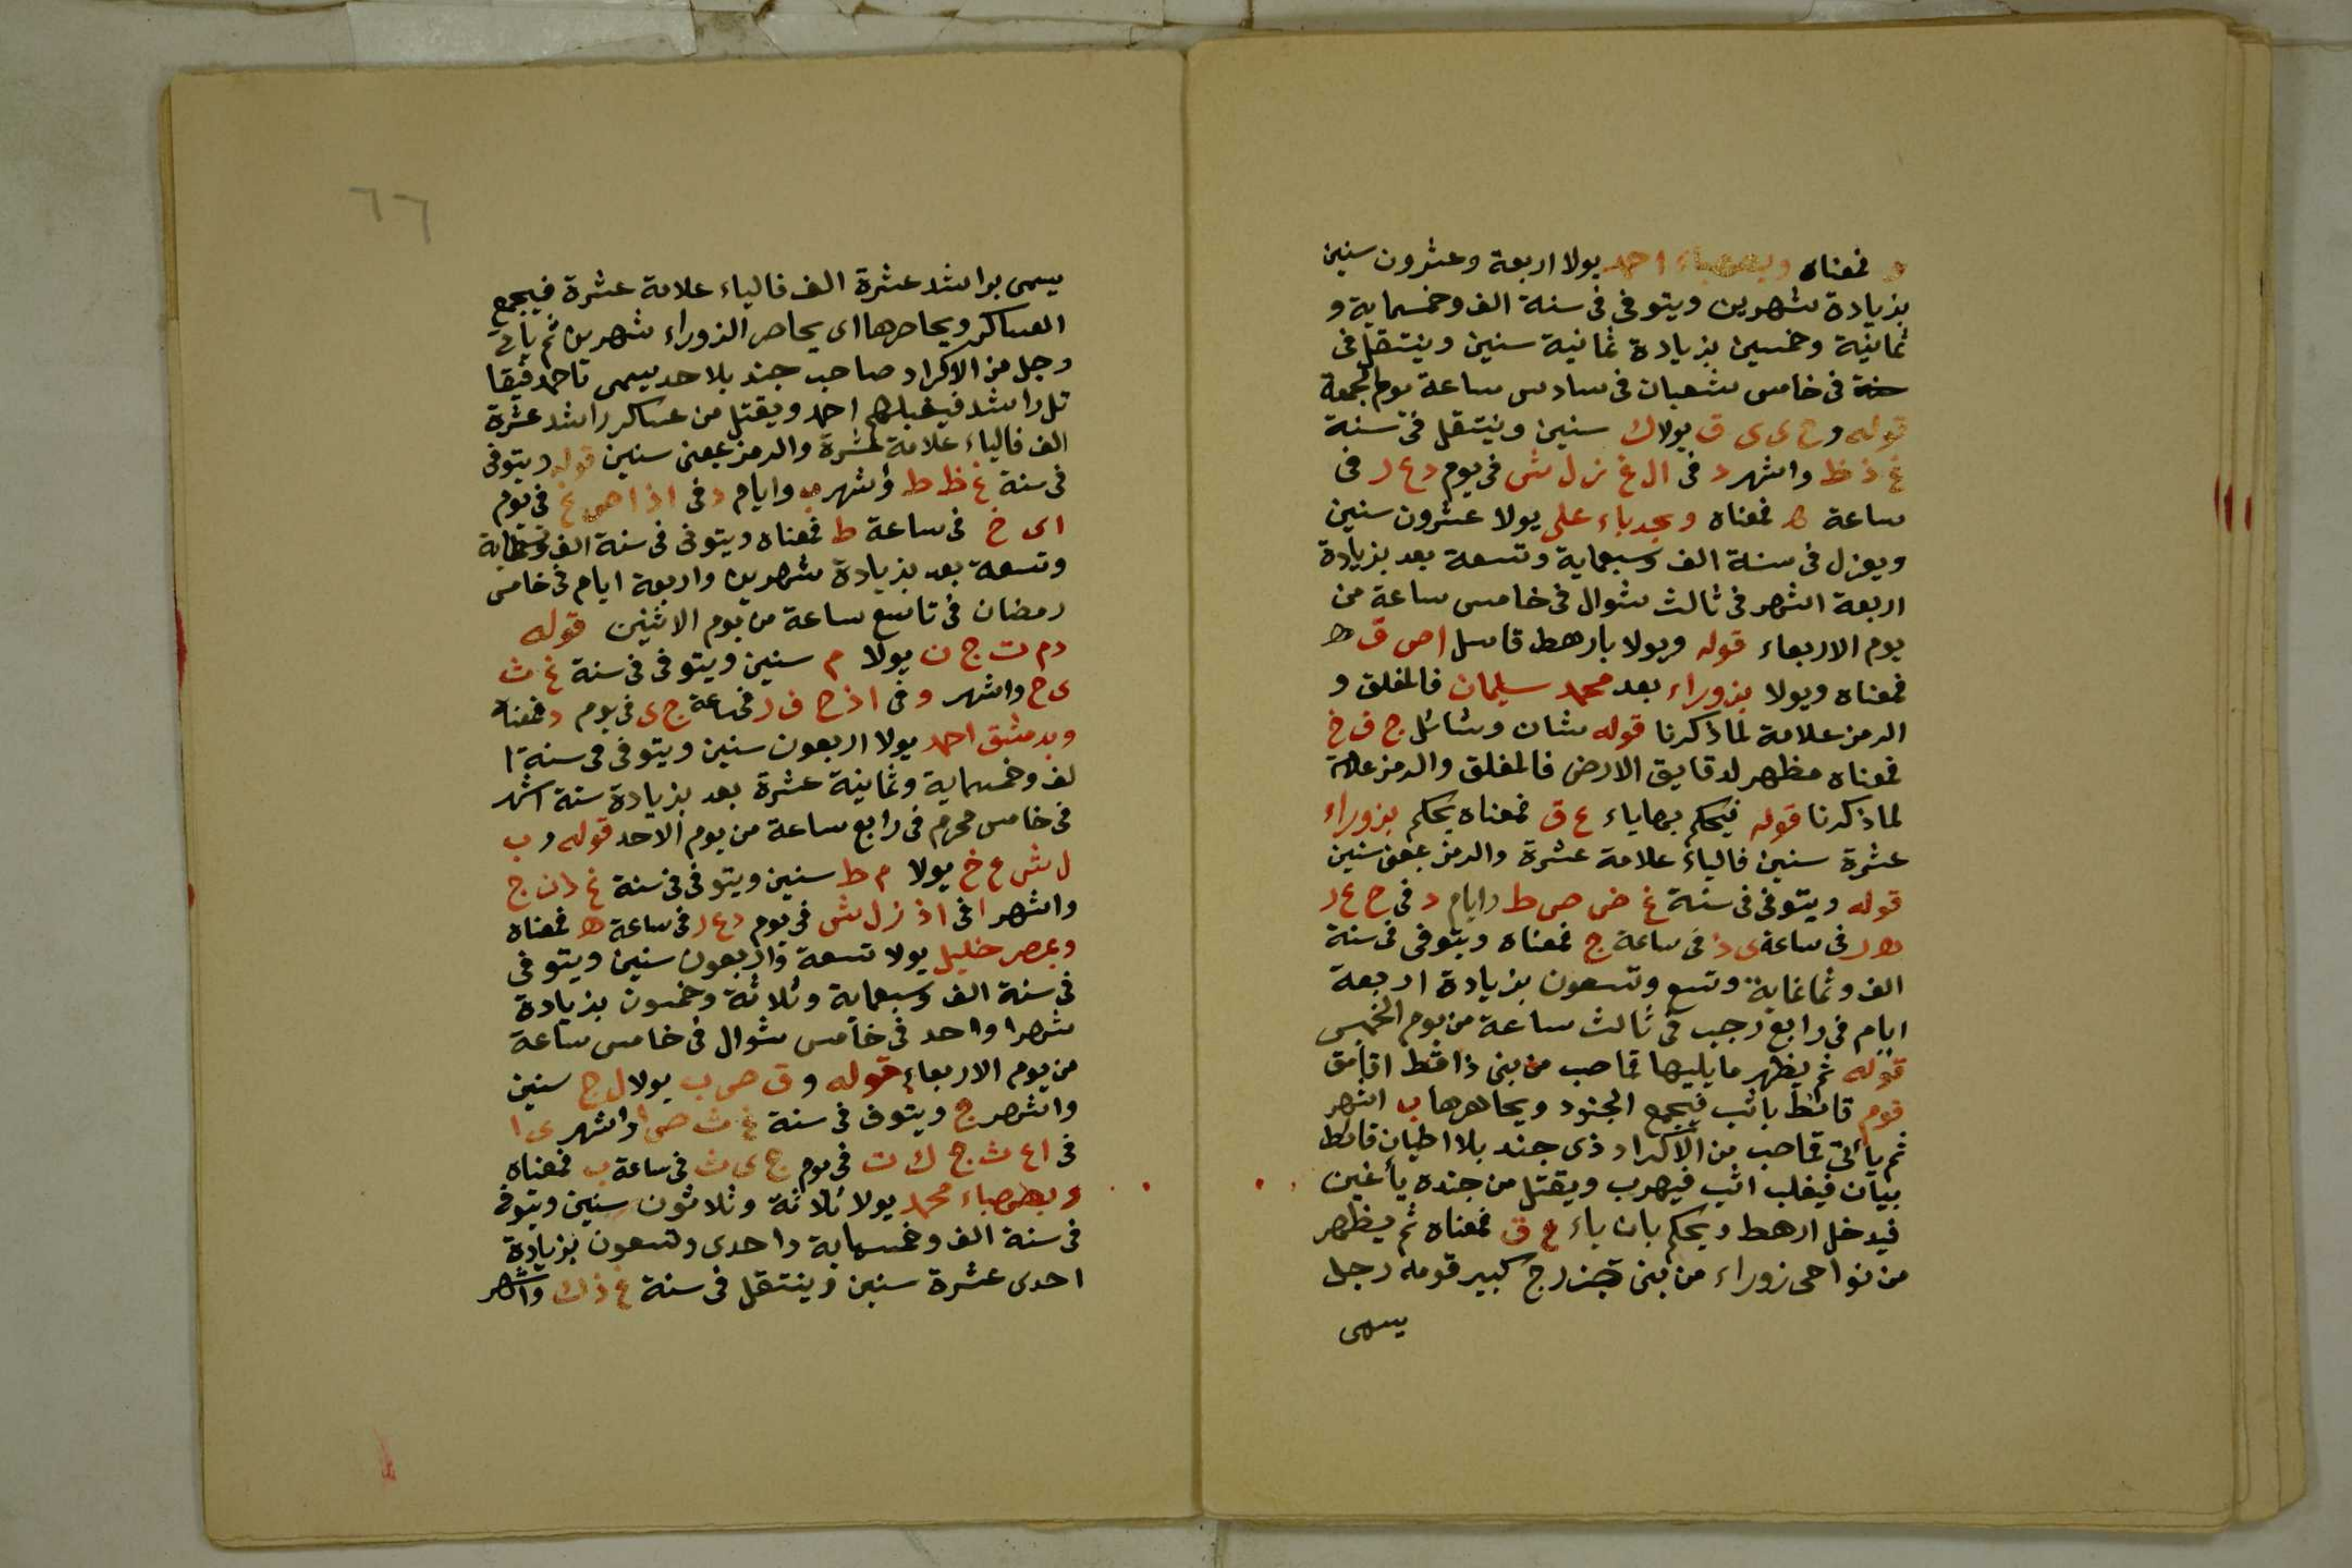 فمعناه احمد يولا اربعة وعشرون سنين
بزيادة شهرين ويتوفى فى سنة الف وخمسماية و
ثمانية وخمسين بزيادة ثمانية سنين وينتقل فى
فى خامس شعبان فى سادس ساعة يوم الجمعة
قوله و ح ى ى ق يولا ك سنين وينتقل فى سنة
غ ذ ظ واشهر د فى ال غ ز ل ش فى يوم د ع ر فى
ساعة ه فمعناه وبجدباء على يولا عشرون سنين
ويعزل فى سنة الف وسبعماية وتسعة بعد بزيادة
اربعة اشهر فى ثالث شوال فى خامس ساعة من
يوم الاربعاء قوله ويولا بارهط قاسل ا ص ق ه
فمعناه ويولا بزوراء بعد محمد سليمان فالمغلق و
الرمز علامة لما ذكرنا قوله شان وشائل ج ف خ
فمعناه مظهر لدقايق الارض فالمغلق والرمز علامة
لما ذكرنا قوله فيحكم بهاياء ع ق فمعناه يحكم بزوراء
عشرة سنين فالياء علامة عشرة والرمز بمعنى سنين
قوله ويتوفى فى سنة غ ض ص ط وايام د فى ج ع ر
فى ساعة ى د فى ساعة ج فمعناه ويتوفى فى سنة
الف وثمانماية وتسع وتسعون بزيادة اربعة
ايام فى رابع رجب فى ثالث ساعة من يوم الخميس
قوله ثم يظهر مايليها قاحب من بنى ذاقط اقامق
قوم قائط باثب فيجمع الجنود ويحاهرها ب اشهر
ثم يأتى قاحب من الاكراد ذى جند بلا اطيان قائط
بيان فيغلب اثب فيهرب ويقتل من جنده يأغين
فيدخل ارهط ويحكم بان ياء ع ق فمعناه ثم يظهر
من نواحى زوراء من بنى خزرج كبير قومه رجل
يسمى
٦٦
يسمى براشد عشرة الف فالياء علامة عشرة فيجمع
العساكر ويحاصرها اى يحاصر الزوراء شهرين ثم ياتى
رجل من الاكراد صاحب جند بلا حد يسمى باحمد فيقا
تل راشد فيغبلهم احمد ويقتل من عساكر راشد عشرة
الف فالياء علامة لعشرة والرمز بمعنى سنين قوله ويتوفى
فى سنة غ ظ ط واشهر ب وايام د فى فى يوم
ا ى خ فى ساعة ط فمعناه ويتوفى فى سنة الف وتسعماية
وتسعة بعد بزيادة شهرين واربعة ايام فى خامس
رمضان فى تاسع ساعة من يوم الاثنين قوله
د م ت ج ن يولا م سنين ويتوفى فى سنة غ ث
ى ح واشهر و فى ا ذ ح ف ر فى ساعة ج ى فى يوم د فمعناه
وبدمشق احمد يولا اربعون سنين ويتوفى فى سنة ا
لف وخمسماية وثمانية عشرة بعد بزيادة ستة اشهر
فى خامس محرم فى رابع ساعة من يوم الاحد قوله و ب
ل ش ع خ يولا م ط سنين ويتوفى فى سنة غ ذ ن ج
واشهر ا فى ا ذ ز ل ش فى يوم د ع ر فى ساعة ه فمعناه
وبمصر خليل يولا تسعة واربعون سنين ويتوفى
فى سنة الف وسبعماية وثلاثة وخمسون بزيادة
شهرا واحد فى خامس شوال فى خامس ساعة
من يوم الاربعاء قوله و ق ص ب يولا ل ج سنين
واشهر ج ويتوف فى سنة غ ث ص ا واشهر ى ا
فى ا ع ث ج ك ت فى يوم ج ى ث فى ساعة ب فمعناه
محمد يولا ثلاثة وثلاثون سنين ويتوفى
فى سنة الف وخمسماية واحدى وتسعون بزيادة
احدى عشرة سنين وينتقل فى سنة غ ذ ك واشهر